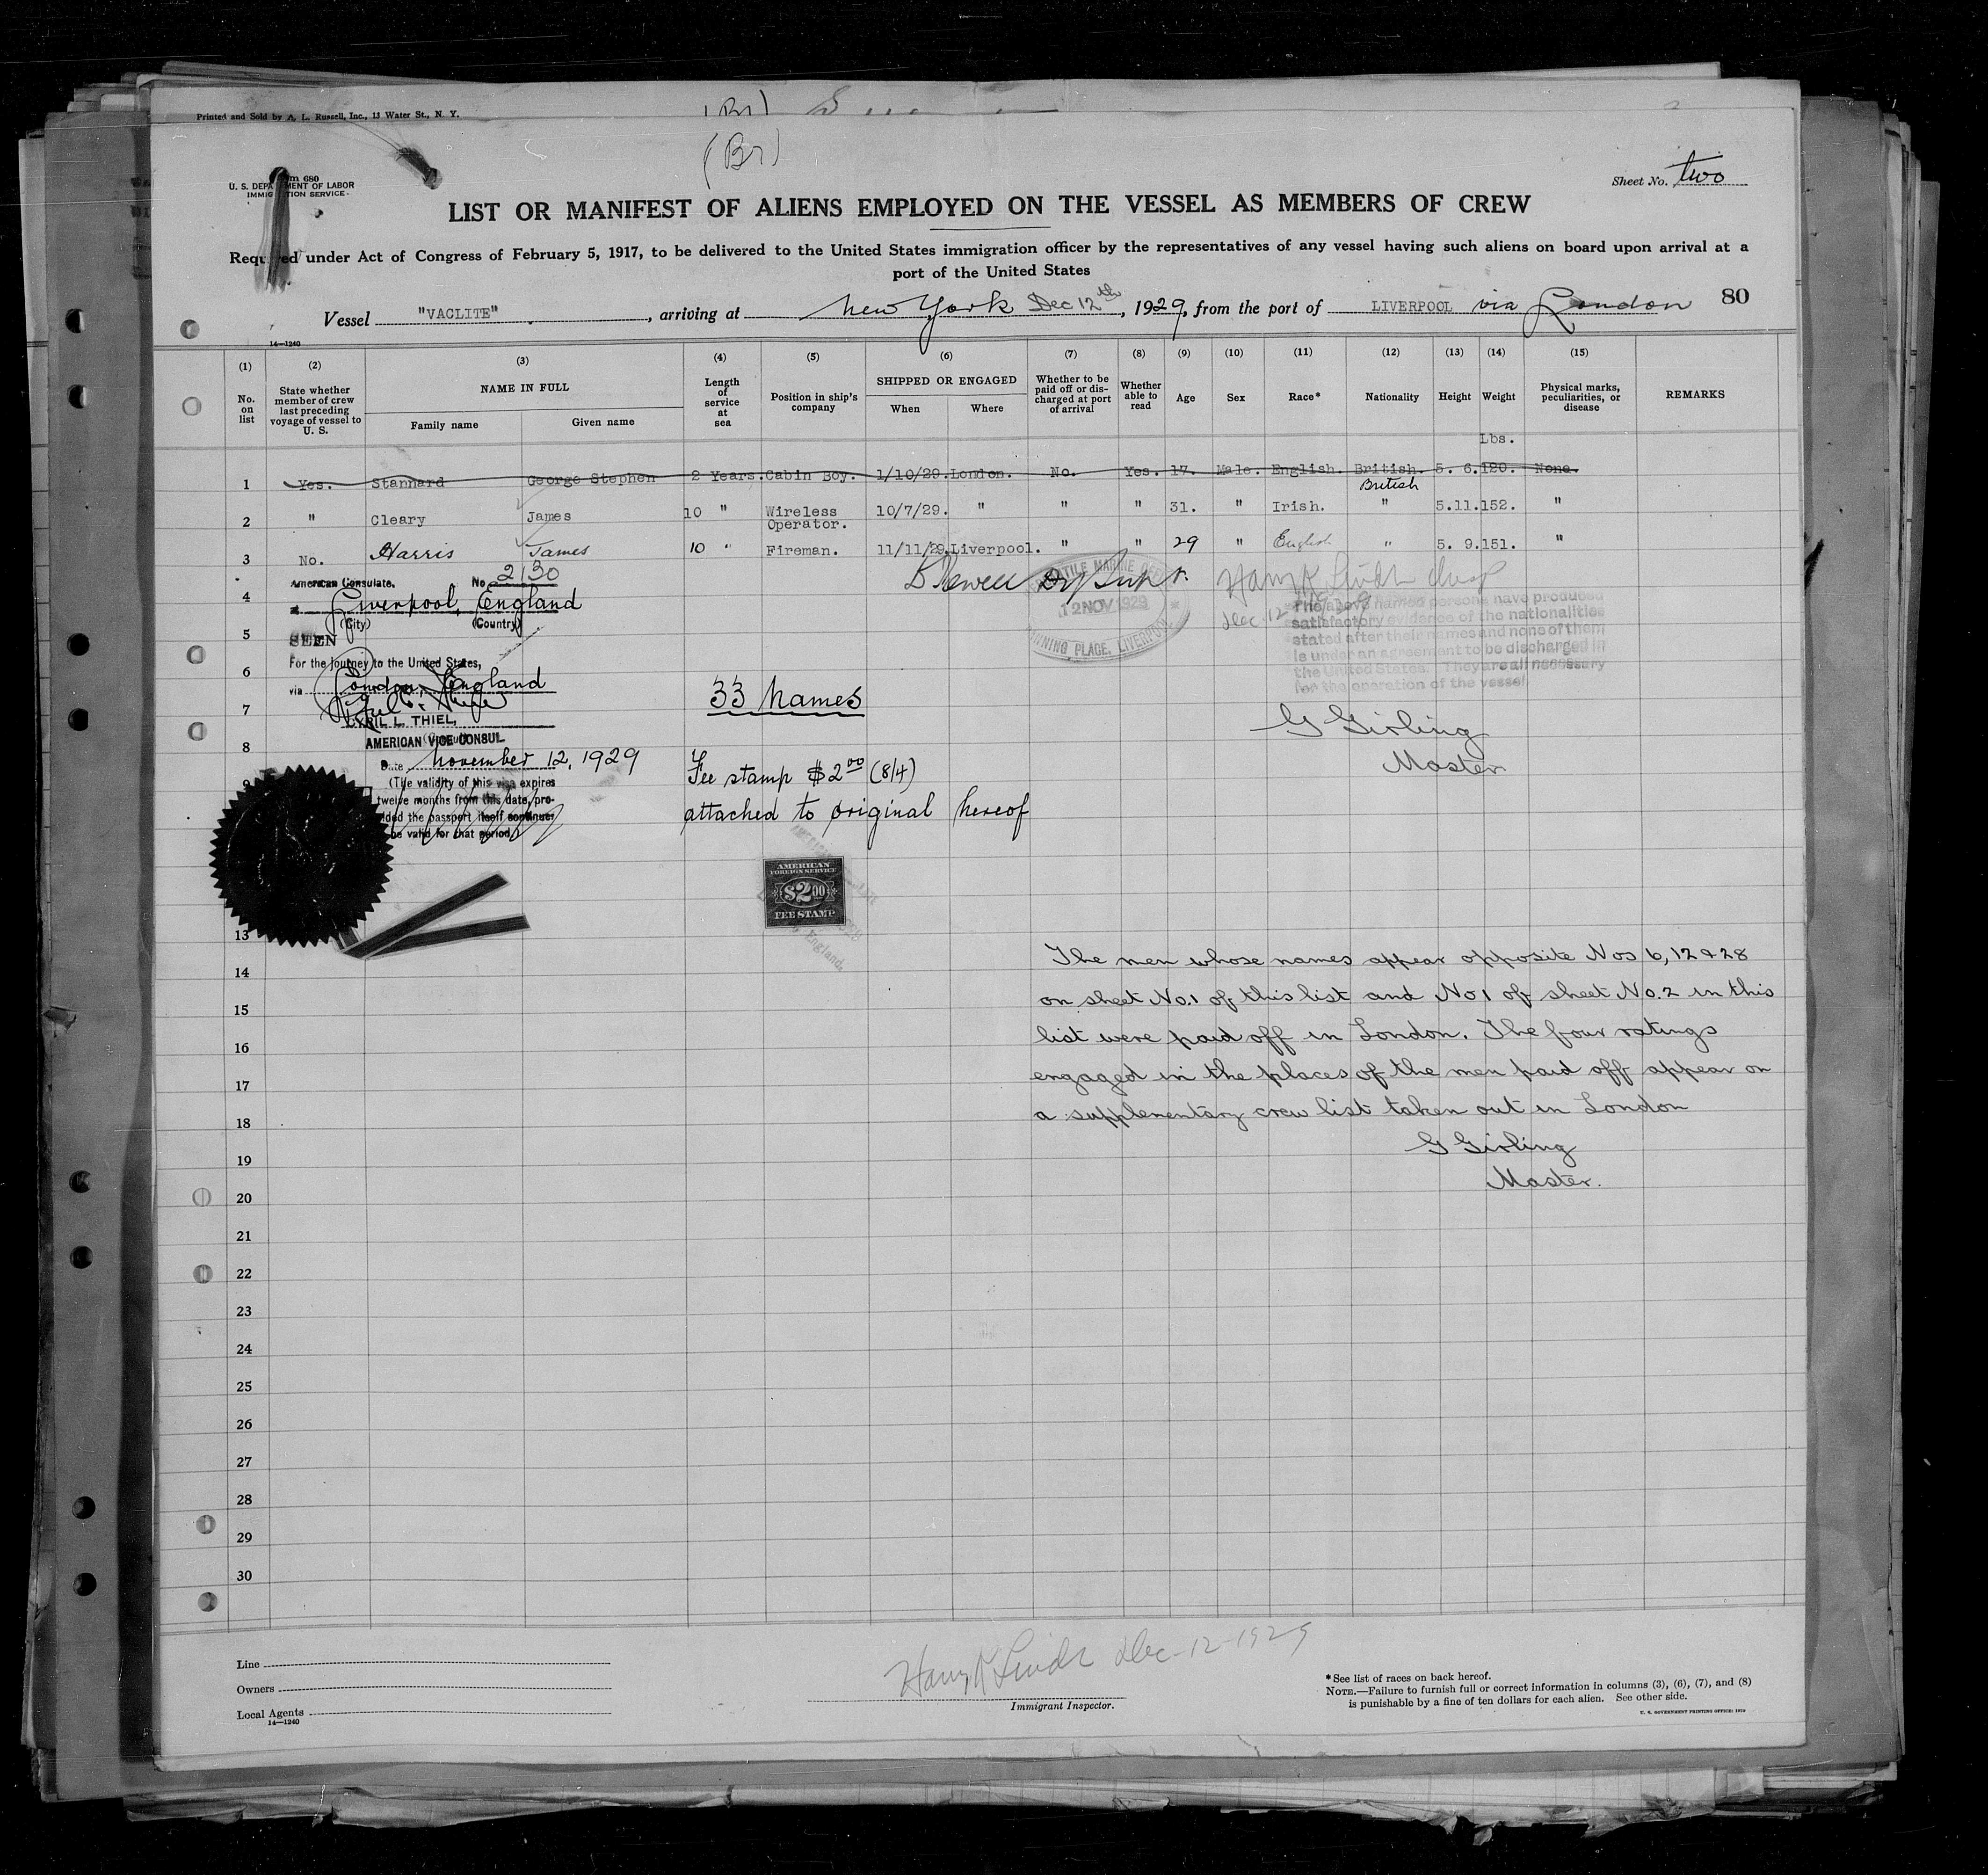 Printed and Sold by A. L. Russell, Inc., 13 Water St., N. Y.
(Br)
(Br)
680
U. S. DEPARTMENT OF LABOR
IMMIGRATION SERVICE
Sheet No. two
LIST OR MANIFEST OF ALIENS EMPLOYED ON THE VESSEL AS MEMBERS OF CREW
Required under Act of Congress of February 5, 1917, to be delivered to the United States immigration officer by the representatives of any vessel having such aliens on board upon arrival at a
port of the United States
Vessel "VACLITE", arriving at New York Dec 12th, 1929, from the port of LIVERPOOL via London 80
14—1240
(1) No. on list
(2) State whether member of crew last preceding voyage of vessel to U. S.
(3) NAME IN FULL Family name Given name
(4) Length of service at sea
(5) Position in ship's company
(6) SHIPPED OR ENGAGED When Where
(7) Whether to be paid off or discharged at port of arrival
(8) Whether able to read
(9) Age
(10) Sex
(11) Race*
(12) Nationality
(13) Height
(14) Weight
(15) Physical marks, peculiarities, or disease
REMARKS
Lbs.
1 Yes. Stannard George Stephen 2 Years. Cabin Boy. 1/10/29. London. No. Yes. 17. Male. English. British. 5. 6. 120. None.
British
2 " Cleary James 10 " Wireless Operator. 10/7/29. " " " 31. " Irish. " 5.11. 152. "
3 No. Harris James 10 " Fireman. 11/11/29. Liverpool. " " 29 " English " 5. 9. 151. "
American Consulate, No 2130
4
Liverpool, England
(City) (Country)
5
SEEN
For the journey to the United States,
6
via London, England
7
CYRIL L. THIEL,
AMERICAN VICE CONSUL
8
Date November 12, 1929
(The validity of this visa expires
twelve months from this date, pro-
vided the passport itself continues
to be valid for that period.)
12 NOV 1929
CANNING PLACE, LIVERPOOL
Dec. 12 1929
The above named persons have produced
satisfactory evidence of the nationalities
stated after their names and none of them
is under an agreement to be discharged in
the United States. They are all necessary
for the operation of the vessel.
G Girling
Master
33 Names
Fee stamp $2.00 (8/4)
attached to original hereof
AMERICAN
FOREIGN SERVICE
$2.00
FEE STAMP
England.
13
The men whose names appear opposite Nos 6, 12 & 28
14
on sheet No.1 of this list and No1 of sheet No.2 in this
15
list were paid off in London. The four ratings
16
engaged in the places of the men paid off appear on
17
a supplementary crew list taken out in London
18
G Girling
19
Master.
20
21
22
23
24
25
26
27
28
29
30
Line
Owners
Local Agents
14—1240
Harry Dec-12-1929
Immigrant Inspector.
*See list of races on back hereof.
NOTE.—Failure to furnish full or correct information in columns (3), (6), (7), and (8)
is punishable by a fine of ten dollars for each alien. See other side.